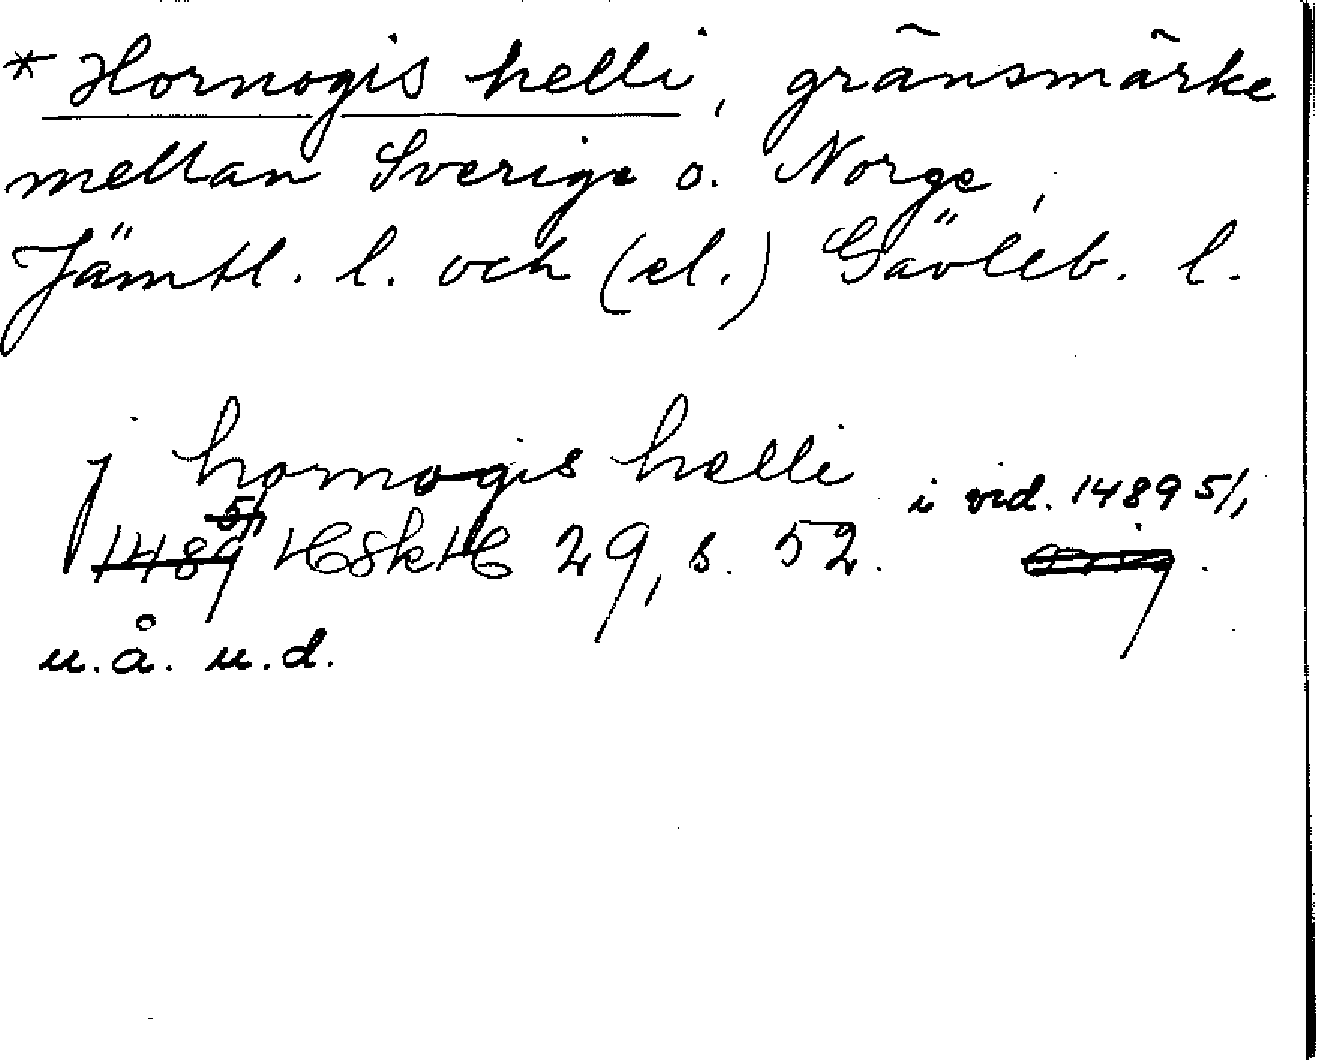 * Hornogis helli, gränsmärke
mellan Sverige o. Norge,
Jämtl. l. och (el.) Gävleb. l.
j hornogis helli i vid. 1489 5/1
1489 5/1 HSkH 29, s. 52. orig.
u.å. u.d.